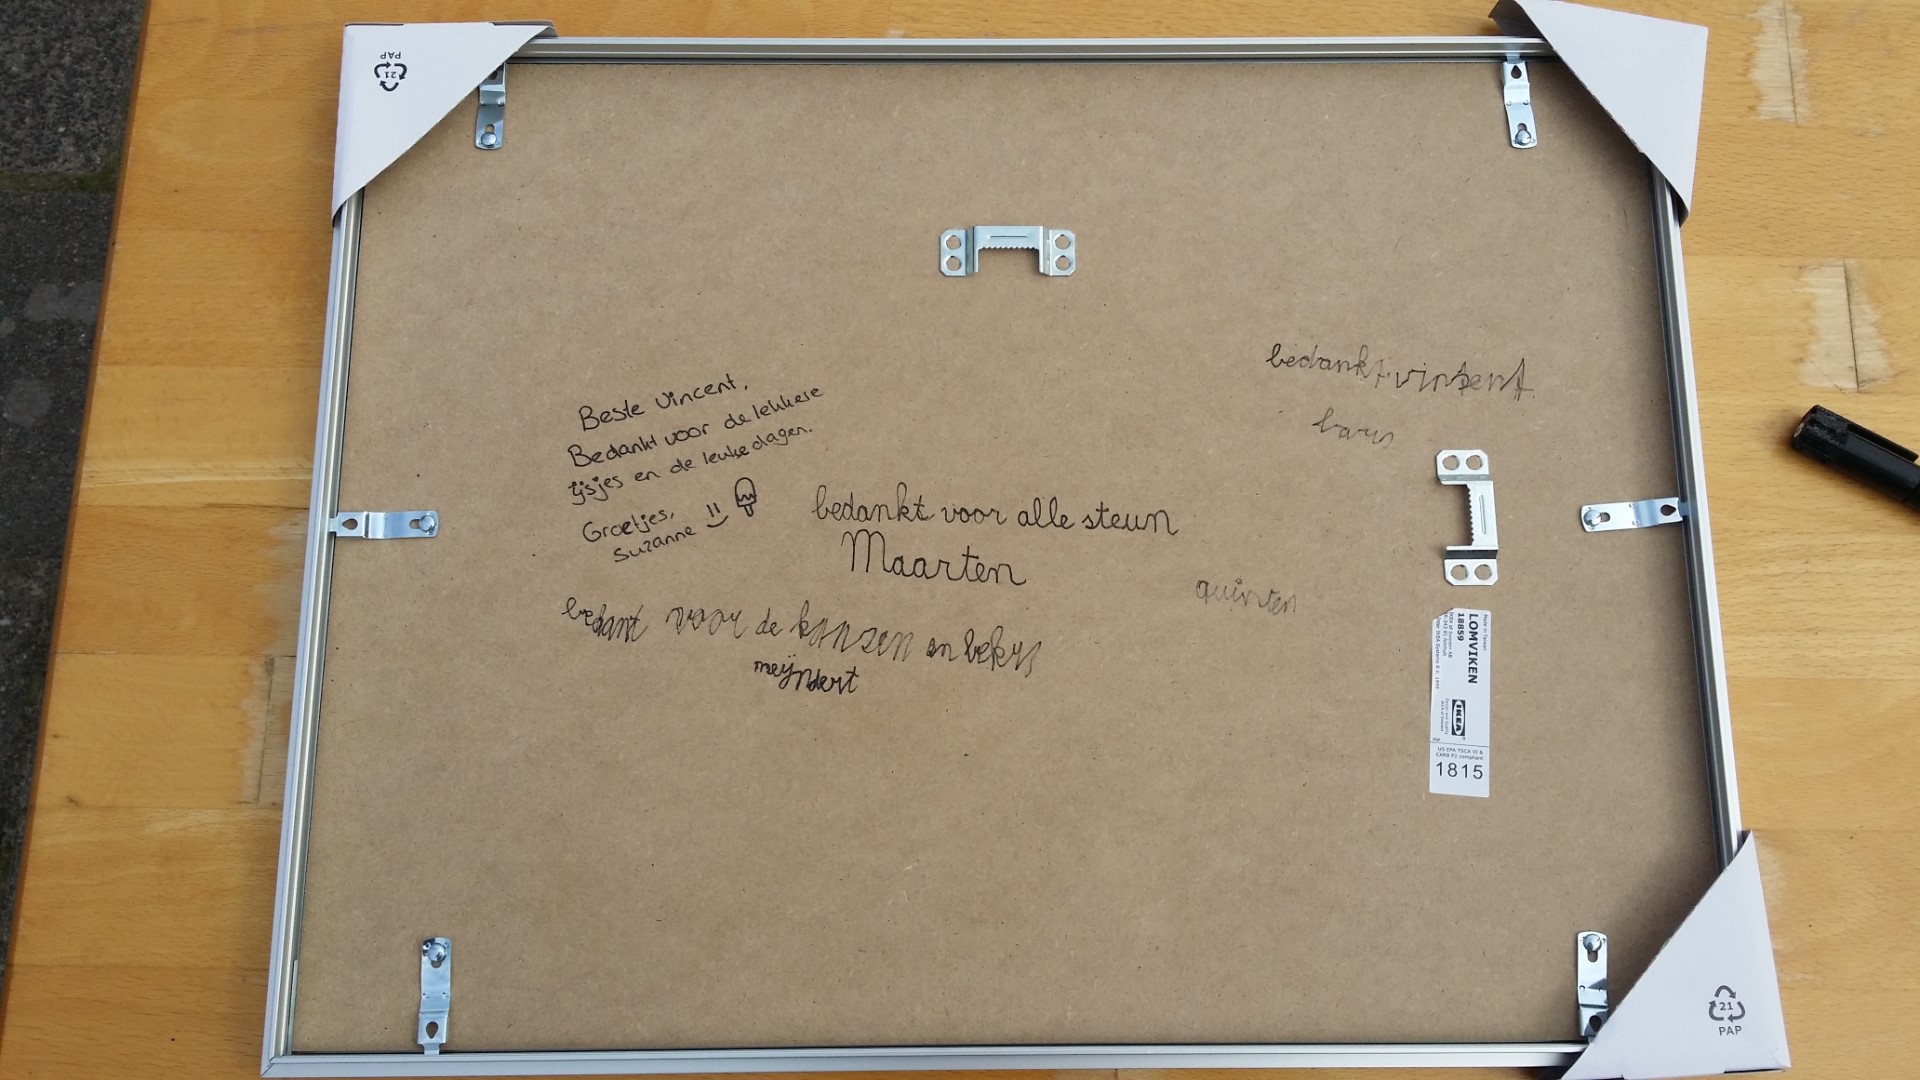 21
PAP
Beste Vincent,
Bedankt voor de lekkere
ijsjes en de leuke dagen.
Groetjes,
Suzanne
bedankt voor alle steun
Maarten
bedant voor de kansen en bekys
meijndert
bedankt vinsent
quinten
Made in Taiwan
LOMVIKEN
18859
IKEA of Sweden AB
IKEA
Design and Quality
IKEA of Sweden
US EPA TSCA VI &
CARB P2 compliant
1815
21
PAP